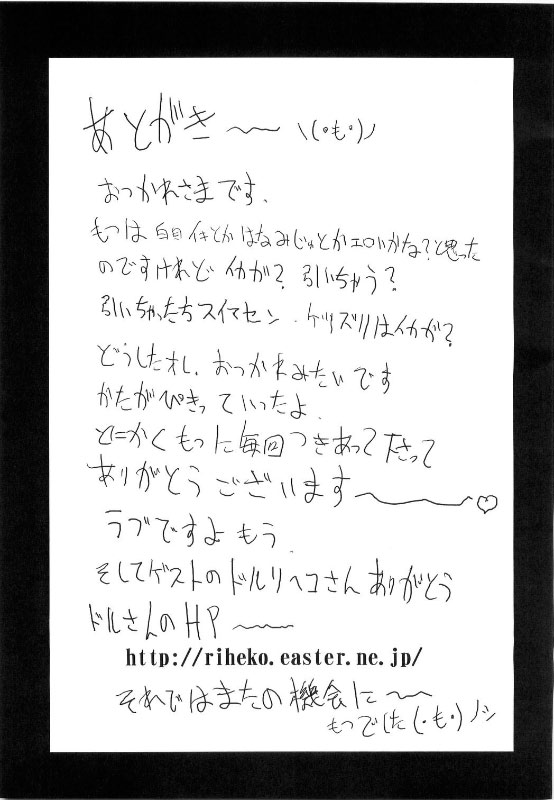 あとがき〜 \(・も・)ノ
おつかれさまです、
もつは白目イキとかはなみじゅとかエロいかな?と思った
のですけれどイカが? 引いちゃう?
引いちゃったらスイマセン。ケツズリはイカが?
どうしたオレ、おつかれみたいです
かたがぴきっていったよ、
とにかくもつに毎回つきあって下さって
ありがとうございます〜♡
ラブですよもう、
そしてゲストのドルリヘコさんありがとう
ドルさんのHP〜
http://riheko.easter.ne.jp/
それではまたの機会に〜
もつでした(・も・)ノシ